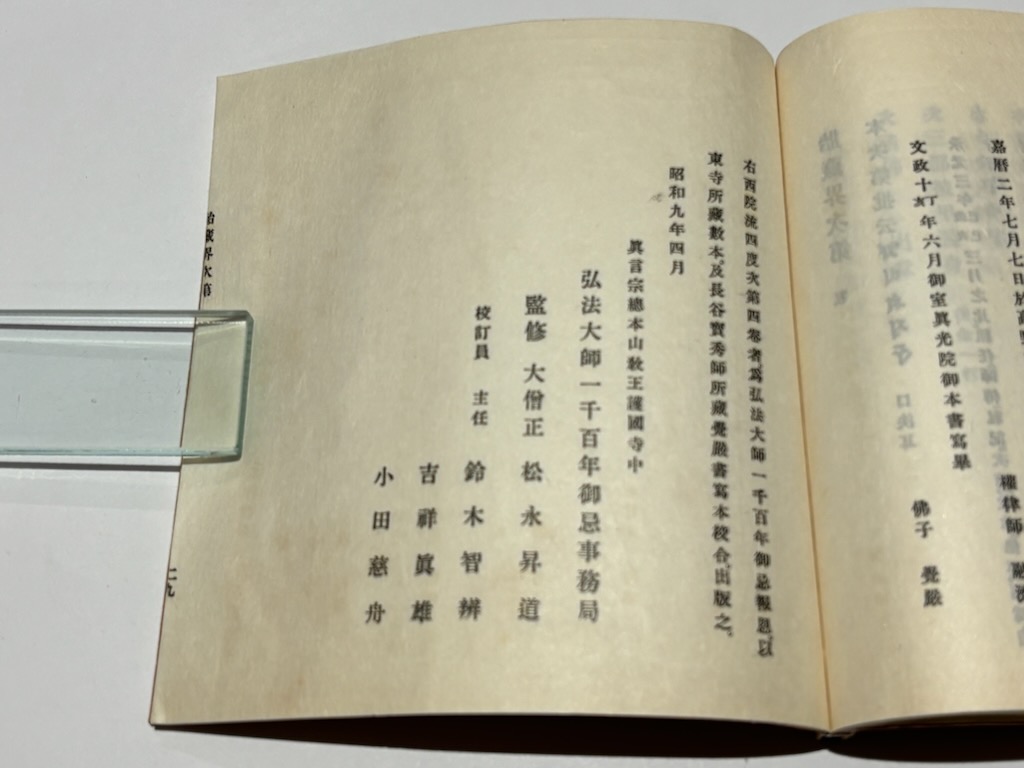 嘉曆二年七月七日於高
權律師
文政十亥丁年六月御室眞光院御本書寫畢
佛子 覺嚴
右西院流四度次第四卷者、爲弘法大師一千百年御忌報恩、以
東寺所藏數本、及長谷寶秀師所藏覺嚴書寫本校合、出版之。
昭和九年四月
眞言宗總本山敎王護國寺中
弘法大師一千百年御忌事務局
監修 大僧正 松永昇道
校訂員 主任 鈴木智辨
吉祥眞雄
小田慈舟
胎藏界次第
二九